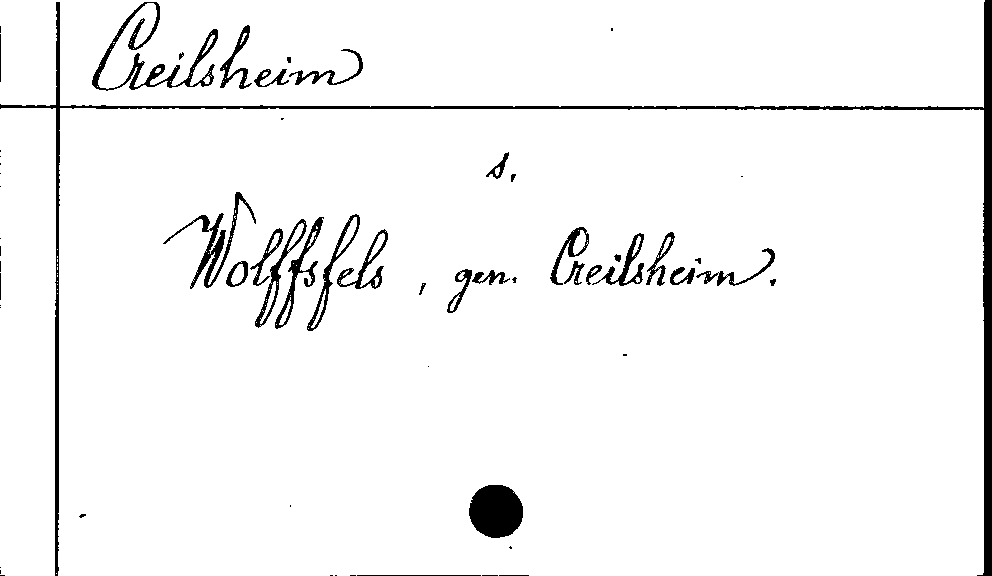 Creilsheim
s.
Wolffsfels, gen. Creilsheim.